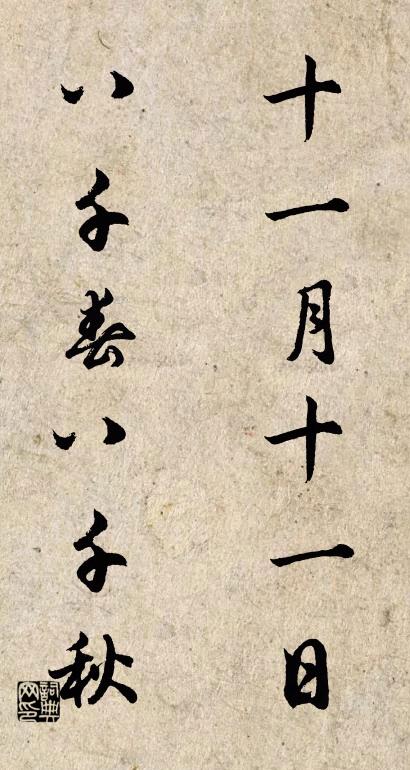 十一月十一日
八千春八千秋
詞典网印